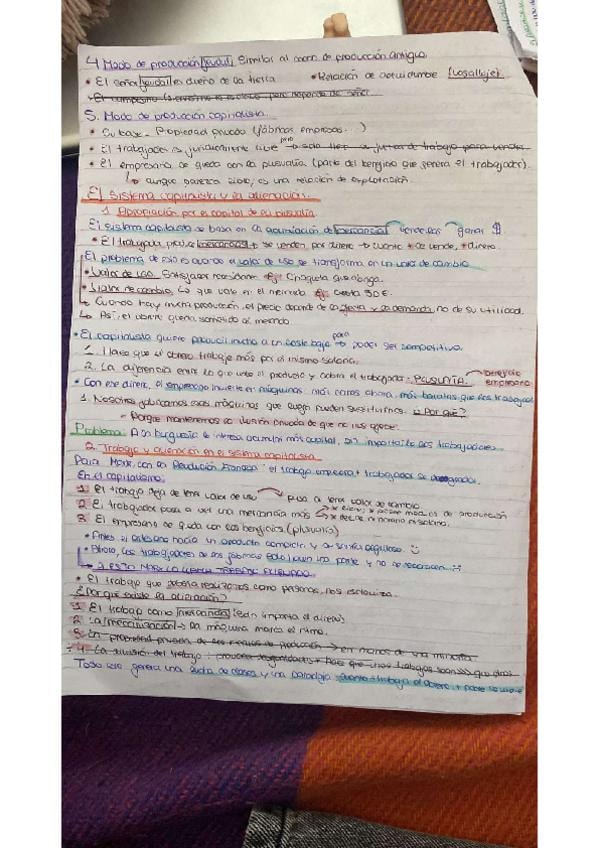 4 Modo de producción feudal: Similar al modo de producción antiguo
• El señor feudal es dueño de la tierra • Relación de servidumbre (vasallaje).
• El campesino
5. Modo de producción capitalista.
• Cu base- Propiedad privada (fábricas empresas. )
• El trabajador es jurídicamente libre pero → solo tiene su fuerza de trabajo para vender
• El empresario se queda con la plusvalía (parte del beneficio que genera el trabajador).
↳ aunque parezca libre, es una relación de explotación.
El sistema capitalista y la alienación.
1. Apropiación por el capital de la plusvalía
El sistema capitalista se basa en la acumulación de mercancías venderlas ganar $
• El trabajador produce mercancías → se venden por dinero → cuanto + se vende, + dinero.
El problema de esto es cuando el valor de uso se transforma en un valor de cambio
• Valor de uso. Satisfacer necesidades ej: Chaqueta que abriga.
• Valor de cambio. Lo que vale en el mercado ej: cuesta 50€.
↳ Cuando hay mucha producción, el precio depende de la oferta y la demanda, no de su utilidad.
↳ Así, el obrero queda sometido al mercado.
• El capitalista quiere producir mucho a un coste bajo para → poder ser competitivo.
1. Hace que el obrero trabaje más por el mismo salario.
2. La diferencia entre lo que vale el producto y cobra el trabajador = PLUSVALÍA → beneficio empresario
• Con ese dinero, el empresario invierte en máquinas más caras ahora, más baratas que los trabajadores
1. Nosotros fabricamos esas máquinas que luego pueden sustituirnos. ¿Por qué?
- Porque mantenemos la ilusión privada de que no nos afecte.
Problema: A la burguesía le interesa acumular más capital, sin importarle los trabajadores
2. Trabajo y alienación en el sistema capitalista
Para Marx, con la Revolución Francesa: el trabajo empeora + trabajador se
En el capitalismo:
1. El trabajo deja de tener valor de uso → pasa a tener valor de cambio
2. El trabajador pasa a ser una mercancía más → no posee medios de producción
→ no decide ni horario ni salario.
3. El empresario se queda con los beneficios (plusvalía)
• Antes el artesano hacía un producto completo y se sentía orgulloso :)
• Ahora, los trabajadores de las fábricas solo hacen una parte y no se reconocen :(
↳ A ESTO MARX LO LLAMA TRABAJO ALIENADO
• El trabajo que debería realizarnos como personas, nos esclaviza.
¿Por qué existe la alienación?
1. El trabajo como mercancía (solo importa el dinero)
2. La mecanización → la máquina marca el ritmo.
3. La propiedad privada de los medios de producción → en manos de una minoría
4. La división del trabajo: provoca desigualdades + hace que unos trabajos sean
Todo esto genera una lucha de clases y una paradoja: cuanto + trabaja el obrero, + pobre se vuelve